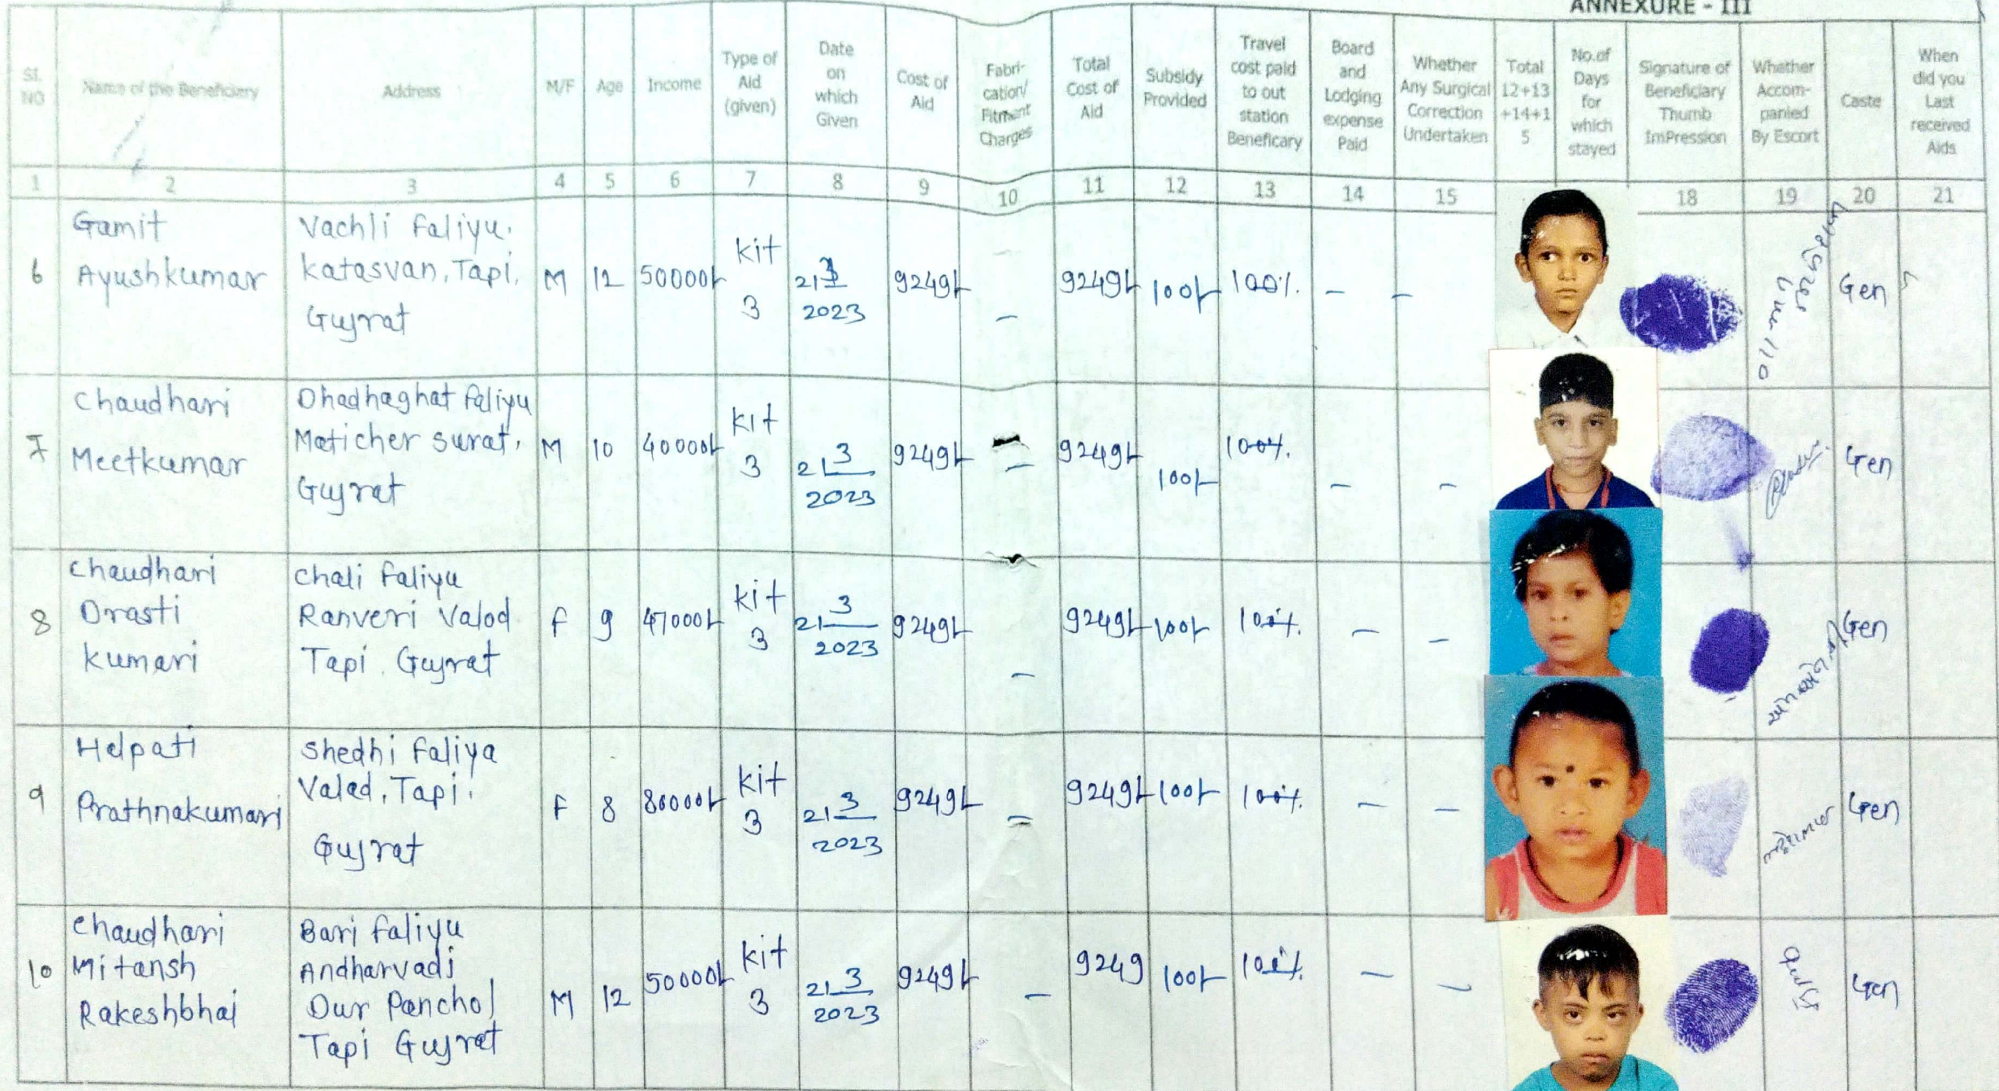 ANNEXURE - III
SL NO Name of the Beneficiery Address M/F Age Income Type of Aid (given) Date on which Given Cost of Aid Fabri-cation/ Fitment Charges Total Cost of Aid Subsidy Provided Travel cost paid to out station Beneficary Board and Lodging expense Paid Whether Any Surgical Correction Undertaken Total 12+13 +14+1 5 No.of Days for which stayed Signature of Beneficiary Thumb ImPression Whather Accom-panied By Escort Caste When did you Last received Aids
1 2 3 4 5 6 7 8 9 10 11 12 13 14 15 18 19 20 21
6 Gamit Ayushkumar Vachli Faliyu. Katasvan, Tapi, Gujrat M 12 50000/- kit 3 21 3 2023 9249/- - 9249/- 100/- 100%. - - Gen
7 Chaudhari Meetkumar Dhadhaghat faliyu Maticher surat, Gujrat M 10 40000/- kit 3 21 3 2023 9249/- - 9249/- 100/- 100%. - - Gen
8 Chaudhari Drasti kumari Chali faliyu Ranveri Valod Tapi. Gujrat F 9 47000/- kit 3 21 3 2023 9249/- - 9249/- 100/- 100%. - - Gen
9 Halpati Prathnakumari Shedhi faliya Valad, Tapi, Gujrat F 8 80000/- kit 3 21 3 2023 9249/- - 9249/- 100/- 100%. - - Gen
10 Chaudhari Mitansh Rakeshbhai Bari faliyu Andharvadi Dur Panchol Tapi Gujrat M 12 50000/- kit 3 21 3 2023 9249/- - 9249 100/- 100%. - - Gen